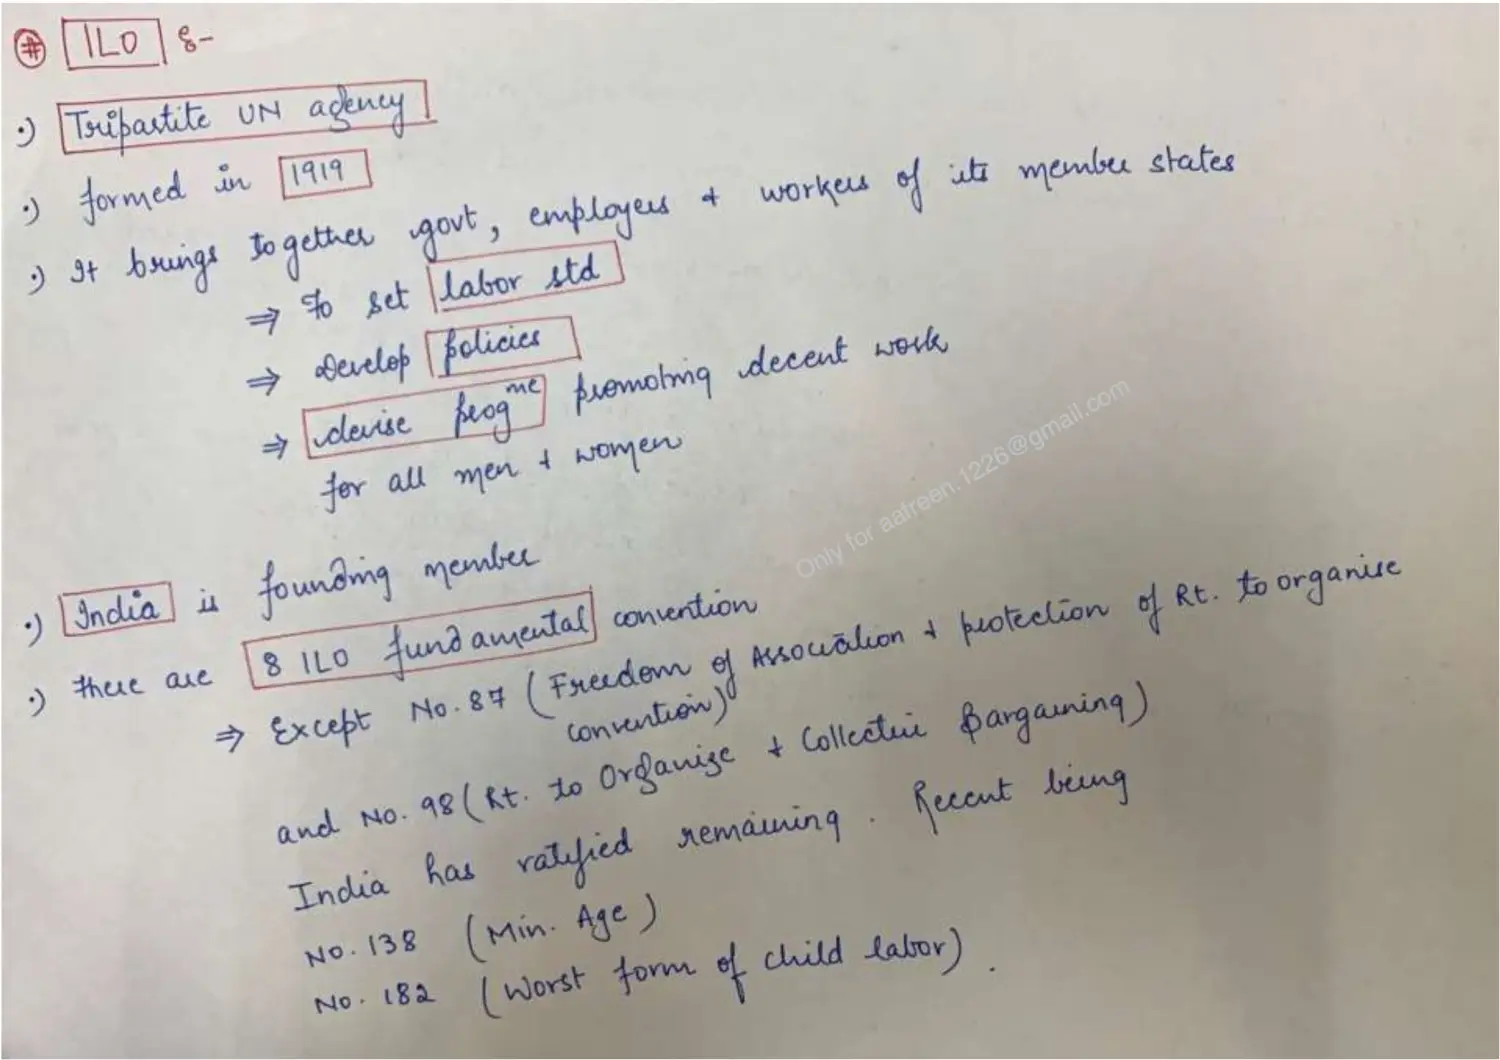 # ILO :-
·) Tripartite UN agency
·) formed in 1919
·) It brings together govt, employers + workers of its member states
⇒ To set labor std
⇒ Develop policies
⇒ devise progme promoting decent work
for all men + women
Only for aafreen.1226@gmail.com
·) India is founding member
·) There are 8 ILO fundamental convention
⇒ Except No. 87 (Freedom of Association + protection of Rt. to organise
convention)
and No. 98 (Rt. to Organize + Collective Bargaining)
India has ratified remaining. Recent being
No. 138 (Min. Age)
No. 182 (Worst form of child labor).